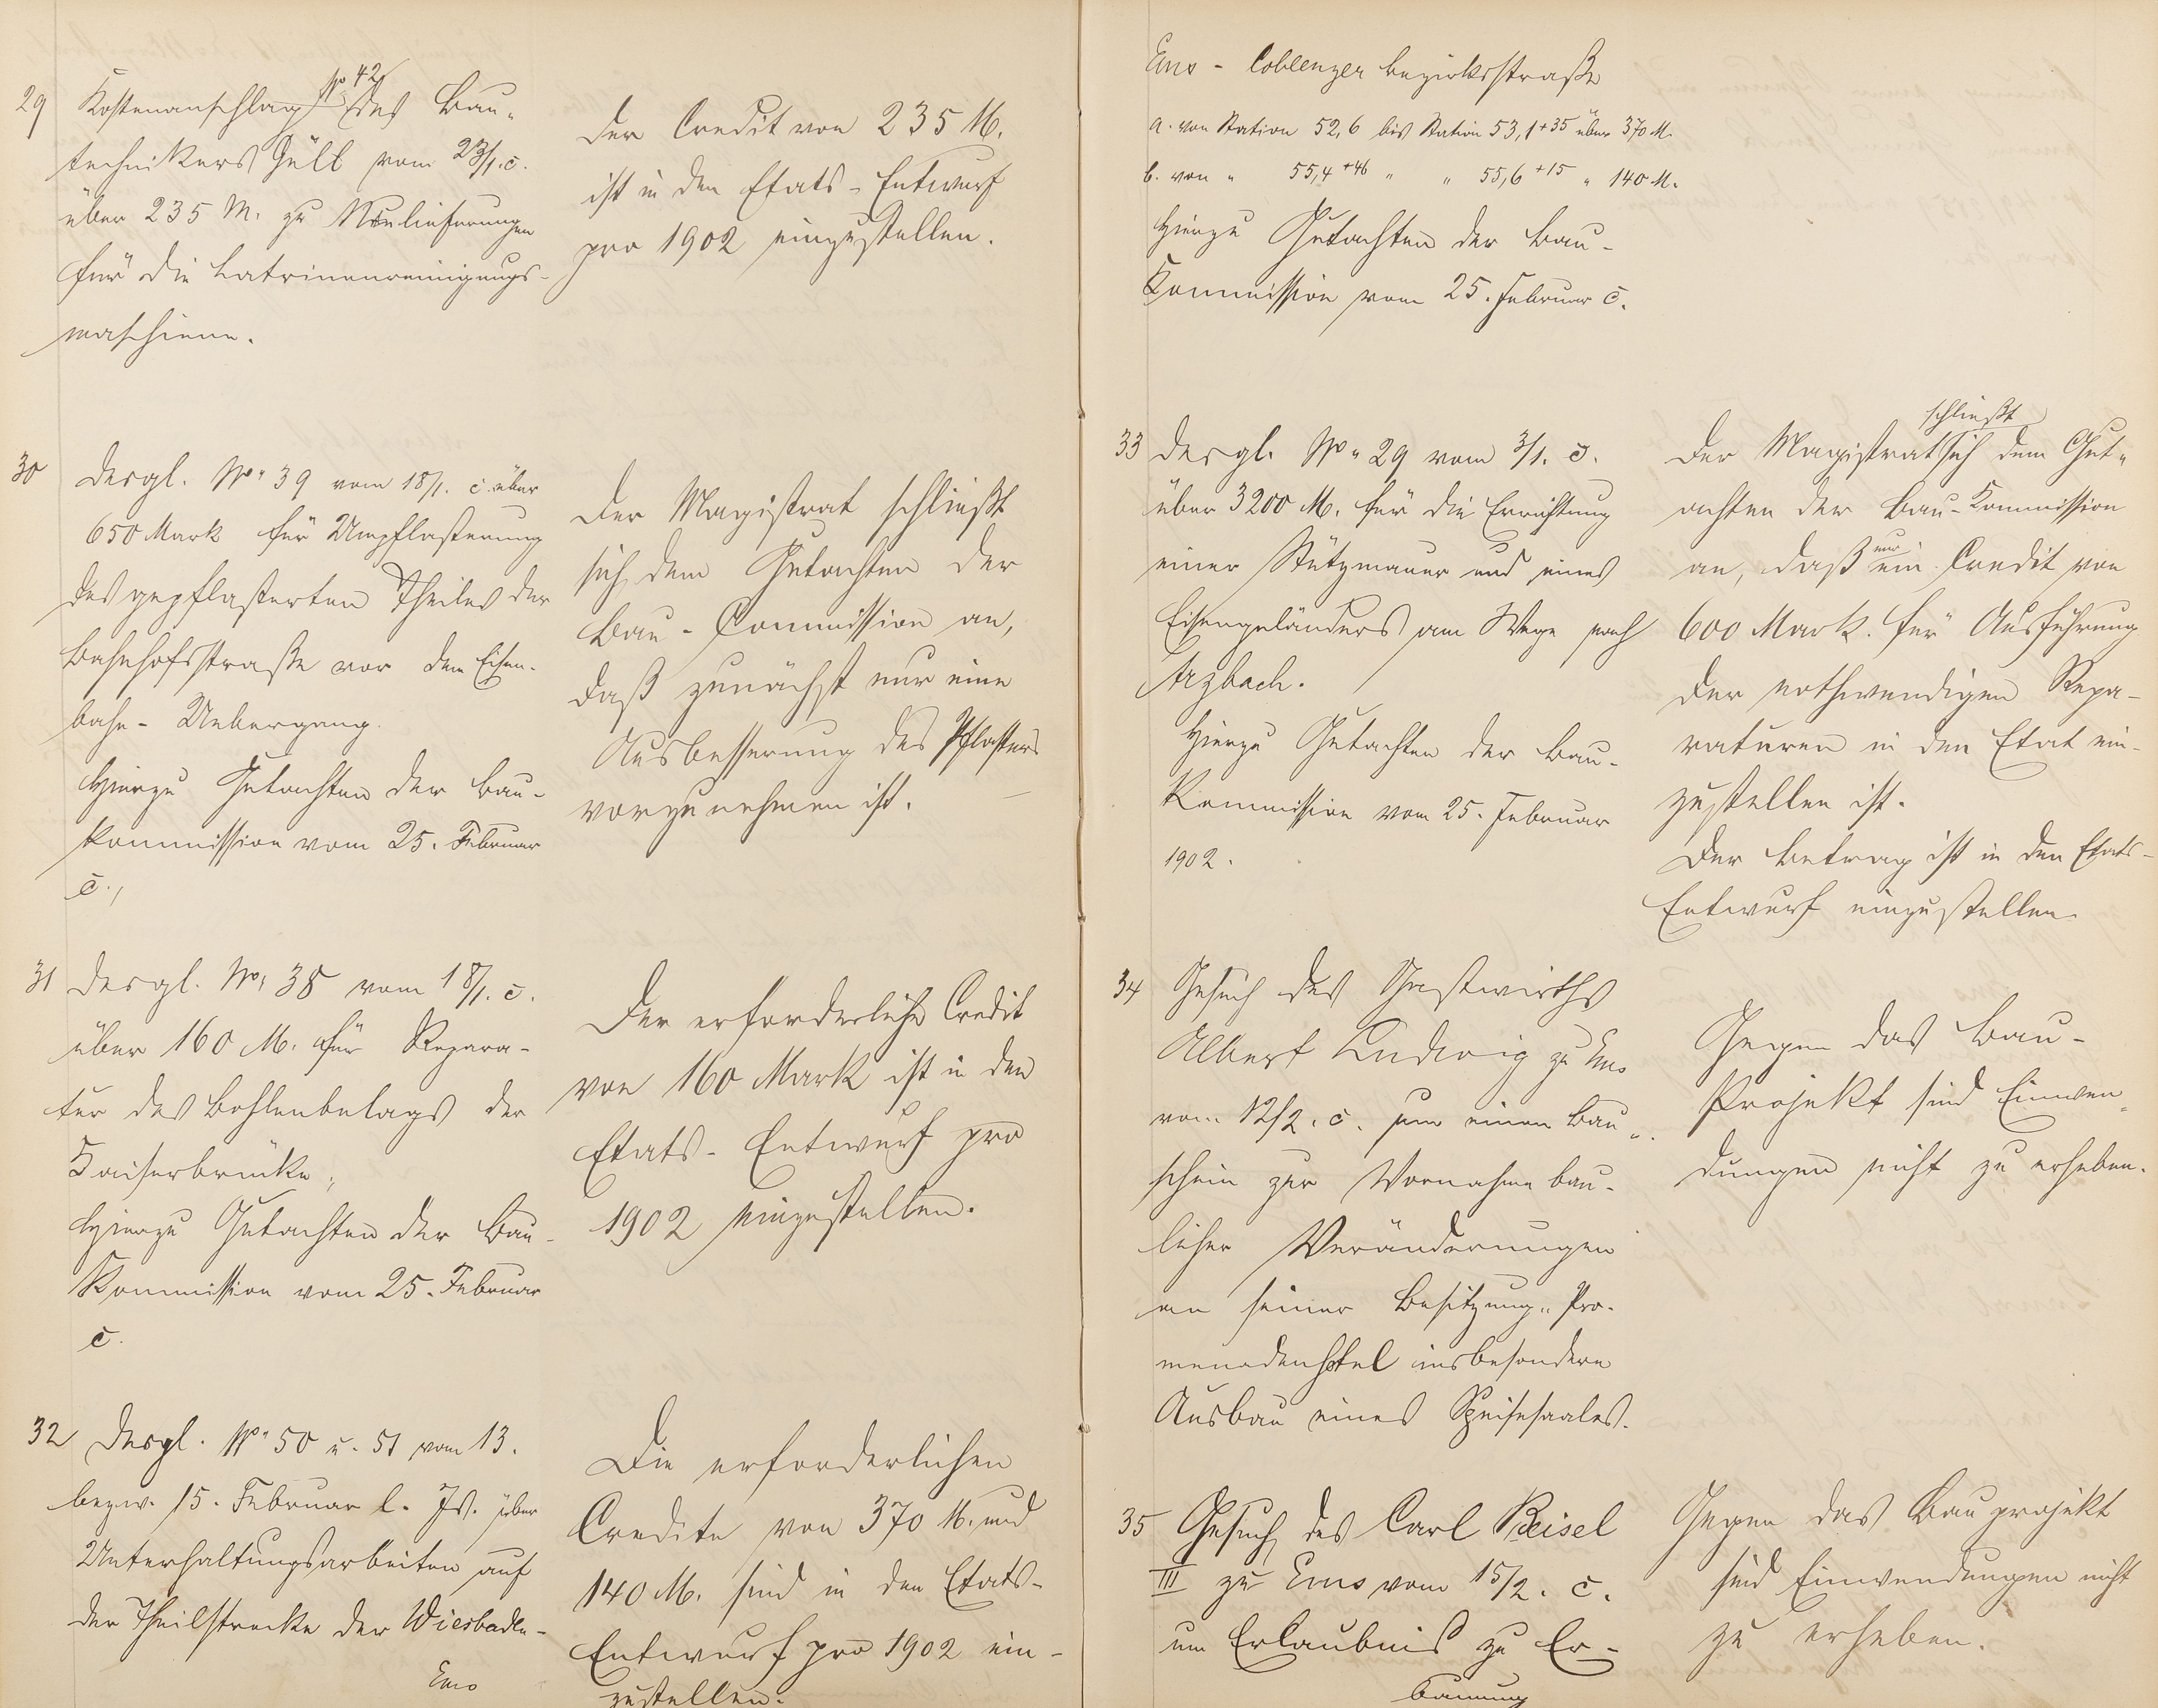 29 Kostenanschlag No 42 des Bau-
technikers Güll vom 23/1. c.
über 235 M. zu Neulieferungen
für die Latrinenreinigungs-
maschiene.
Der Credit von 235 M.
ist in den Etats-Entwurf
pro 1902 einzustellen.
30 Desgl. No 39 vom 18/1. c. über
650 Mark für Umpflasterung
des gepflasterten Theiles der
Bahnhofsstraße vor dem Eisen-
bahn-Uebergang.
Hierzu Gutachten der Bau-
kommission vom 25. Februar
c.,
Der Magistrat schließt
sich dem Gutachten der
Bau-Commission an,
daß zunächst nur eine
Ausbesserung des Pflasters
vorzunehmen ist.
31 Desgl. No 38 vom 18/1. c.
über 160 M. für Repara-
tur des Bohlenbelags der
Kaiserbrücke,
Hierzu Gutachten der Bau-
Kommission vom 25. Februar
c.
Der erforderliche Credit
von 160 Mark ist in den
Etats-Entwurf pro
1902 einzustellen.
32 Desgl. No 50 u. 51 vom 13.
bezw. 15. Februar l. Js. über
Unterhaltungsarbeiten auf
der Theilstrecke der Wiesbaden-
Ems
Die erforderlichen
Credite von 370 M. und
140 M. sind in den Etats-
Entwurf pro 1902 ein-
zustellen.
Ems-Coblenzer Bezirksstraße
a. von Station 52,6 bis Station 53,1+35 über 370 M.
b. von " 55,4+46 " " 55,6+15 " 140 M.
Hierzu Gutachten der Bau-
Kommission vom 25. Februar c.
33 Desgl. No 29 vom 3/1. c.
über 3200 M. für die Errichtung
einer Stützmauer und eines
Eisengeländers am Wege nach
Arzbach.
Hierzu Gutachten der Bau-
Kommission vom 25. Februar
1902.
Der Magistrat schließt sich dem Gut-
achten der Bau-Kommission
an, daß nur ein Credit von
600 Mark. für Ausführung
der nothwendigen Repa-
raturen in den Etat ein-
zustellen ist.
Der Betrag ist in den Etats-
Entwurf einzustellen.
34 Gesuch des Gastwirths
Albert Ludwig zu Ems
vom 12/2. c. um einen Bau-
schein zur Vornahme bau-
licher Veränderungen
an seiner Besitzung "Pro-
menadenhotel insbesondere
Ausbau eines Speisesaales.
Gegen das Bau-
Projekt sind Einwen-
dungen nicht zu erheben.
35 Gesuch des Carl Beisel
III zu Ems vom 15/2. c.
um Erlaubnis zu Er-
bauung
Gegen das Bauprojekt
sind Einwendungen nicht
zu erheben.